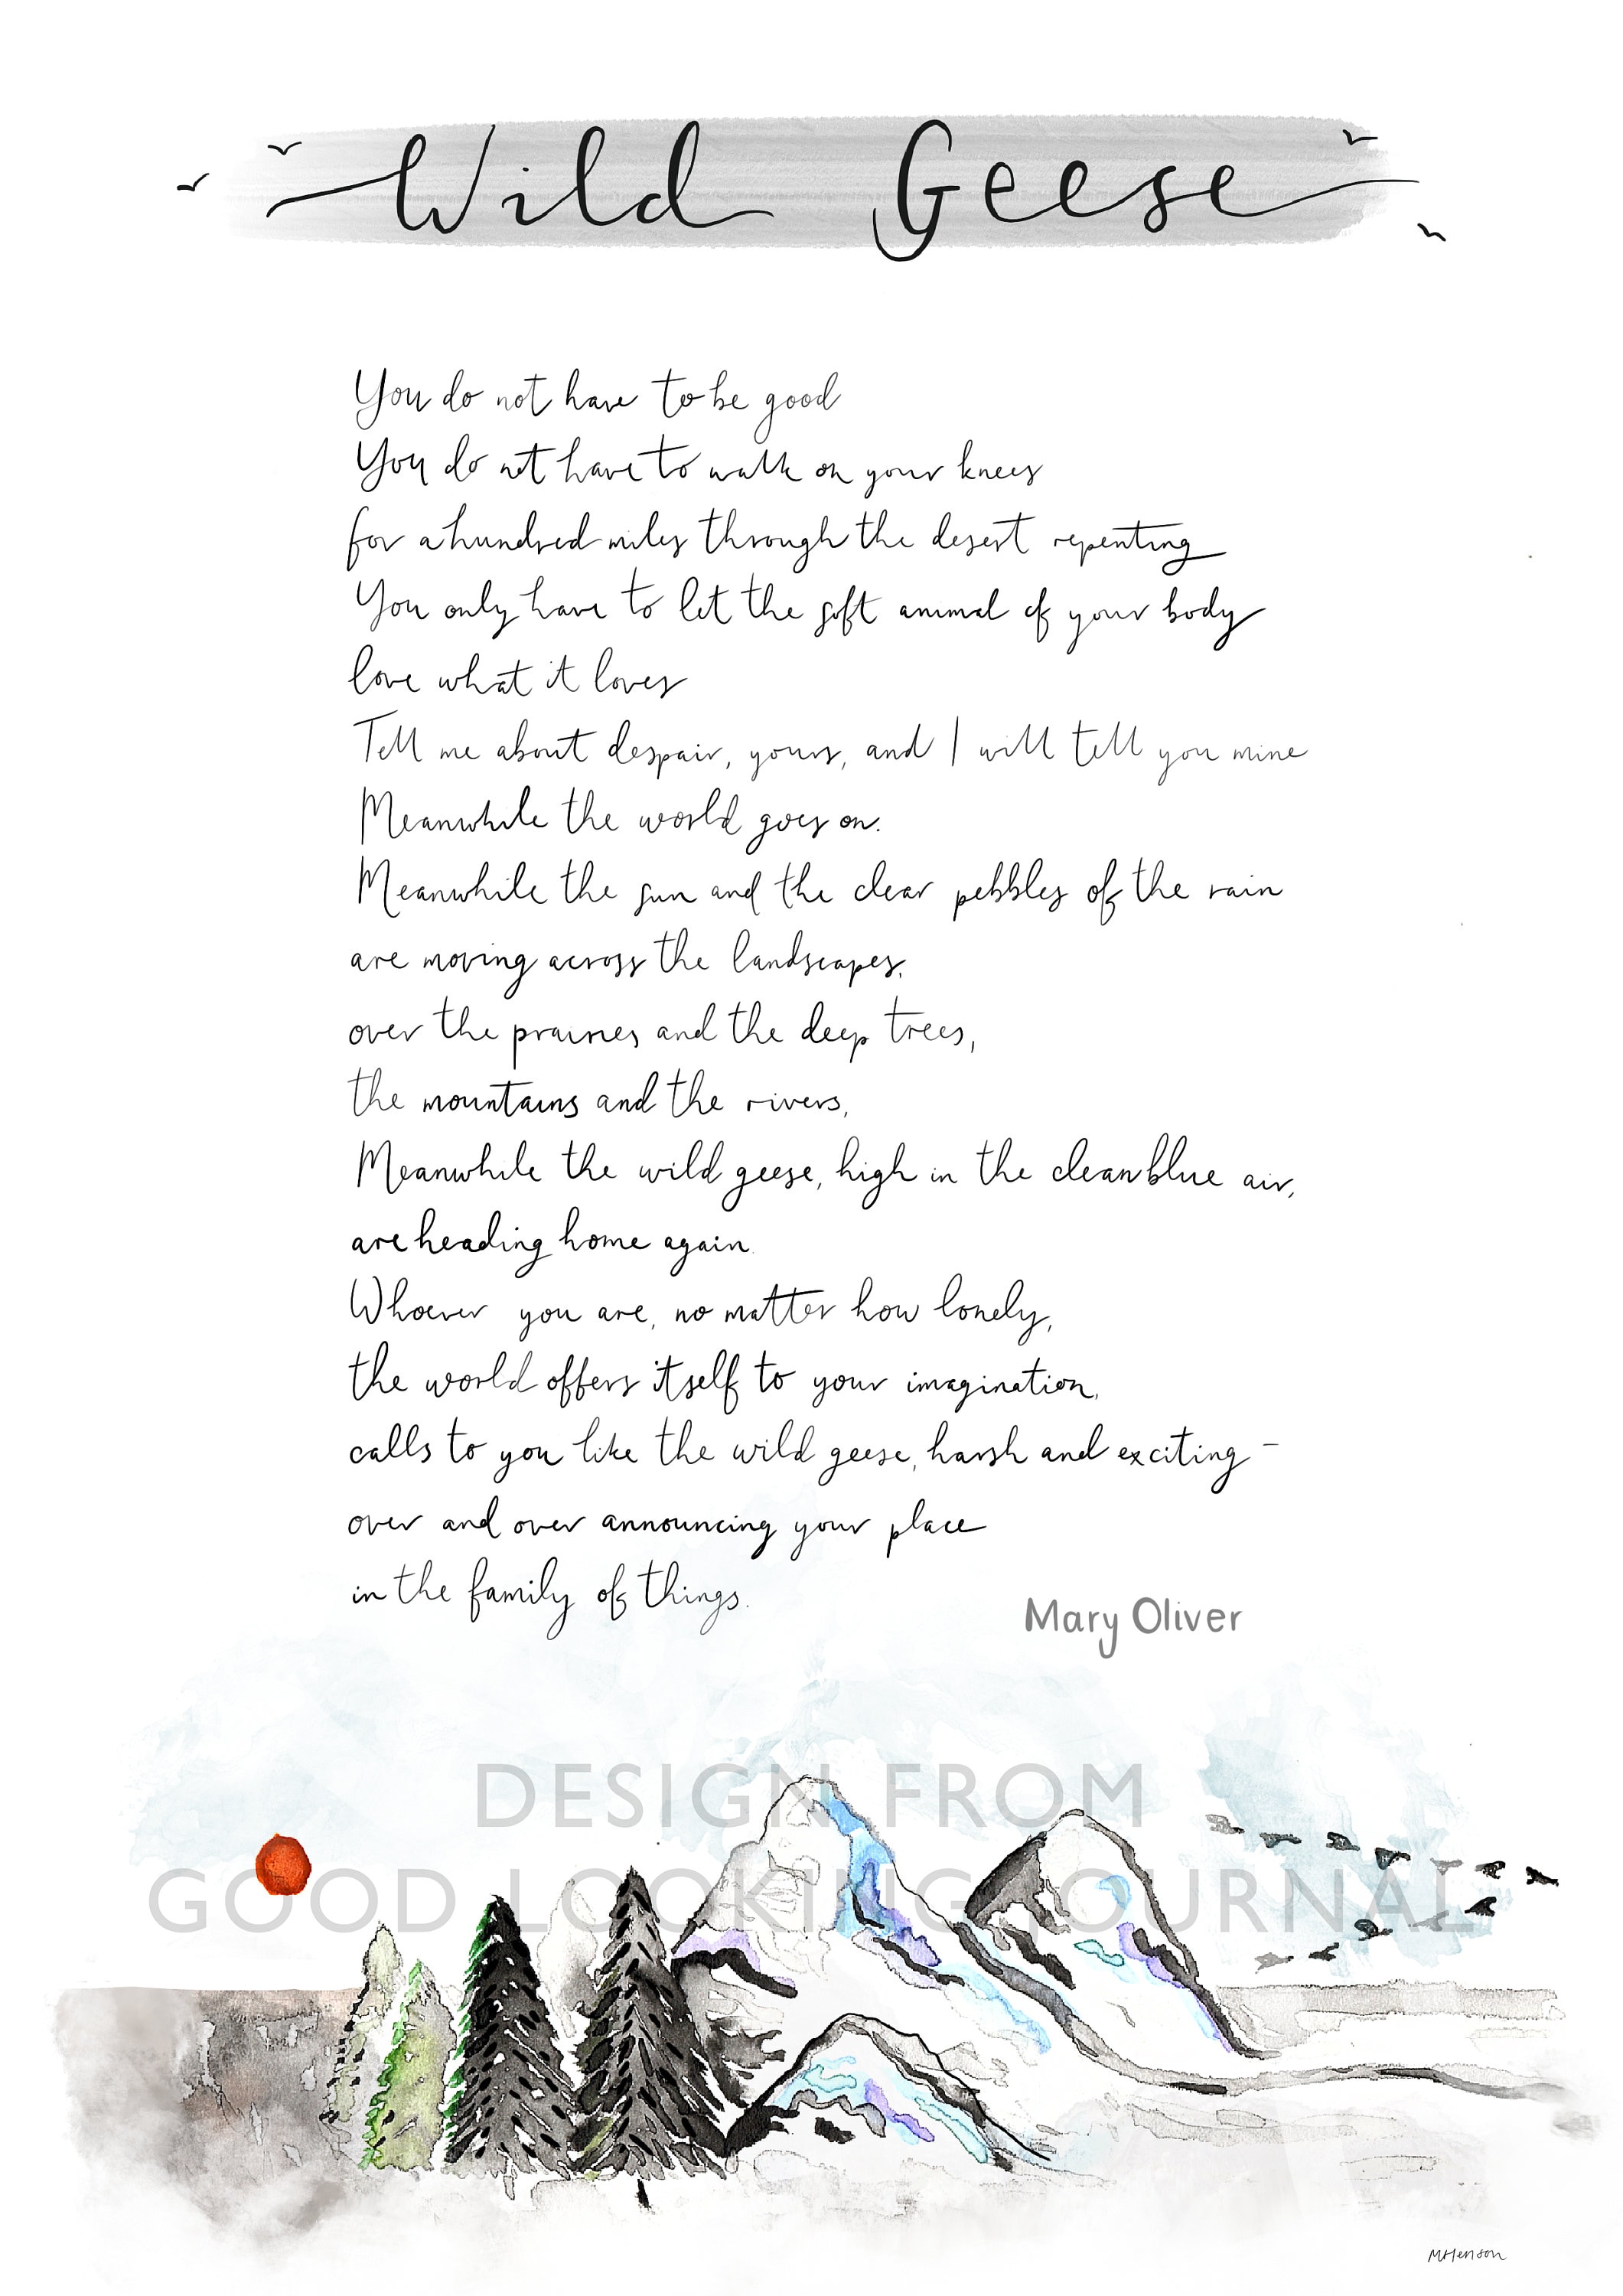 Wild Geese
You do not have to be good
You do not have to walk on your knees
for a hundred miles through the desert repenting
You only have to let the soft animal of your body
love what it loves
Tell me about despair, yours, and I will tell you mine
Meanwhile the world goes on.
Meanwhile the sun and the clear pebbles of the rain
are moving across the landscapes,
over the prairies and the deep trees,
the mountains and the rivers,
Meanwhile the wild geese, high in the clean blue air,
are heading home again.
Whoever you are, no matter how lonely,
the world offers itself to your imagination,
calls to you like the wild geese, harsh and exciting –
over and over announcing your place
in the family of things.
Mary Oliver
DESIGN FROM
GOOD LOOKING JOURNAL
MHenson